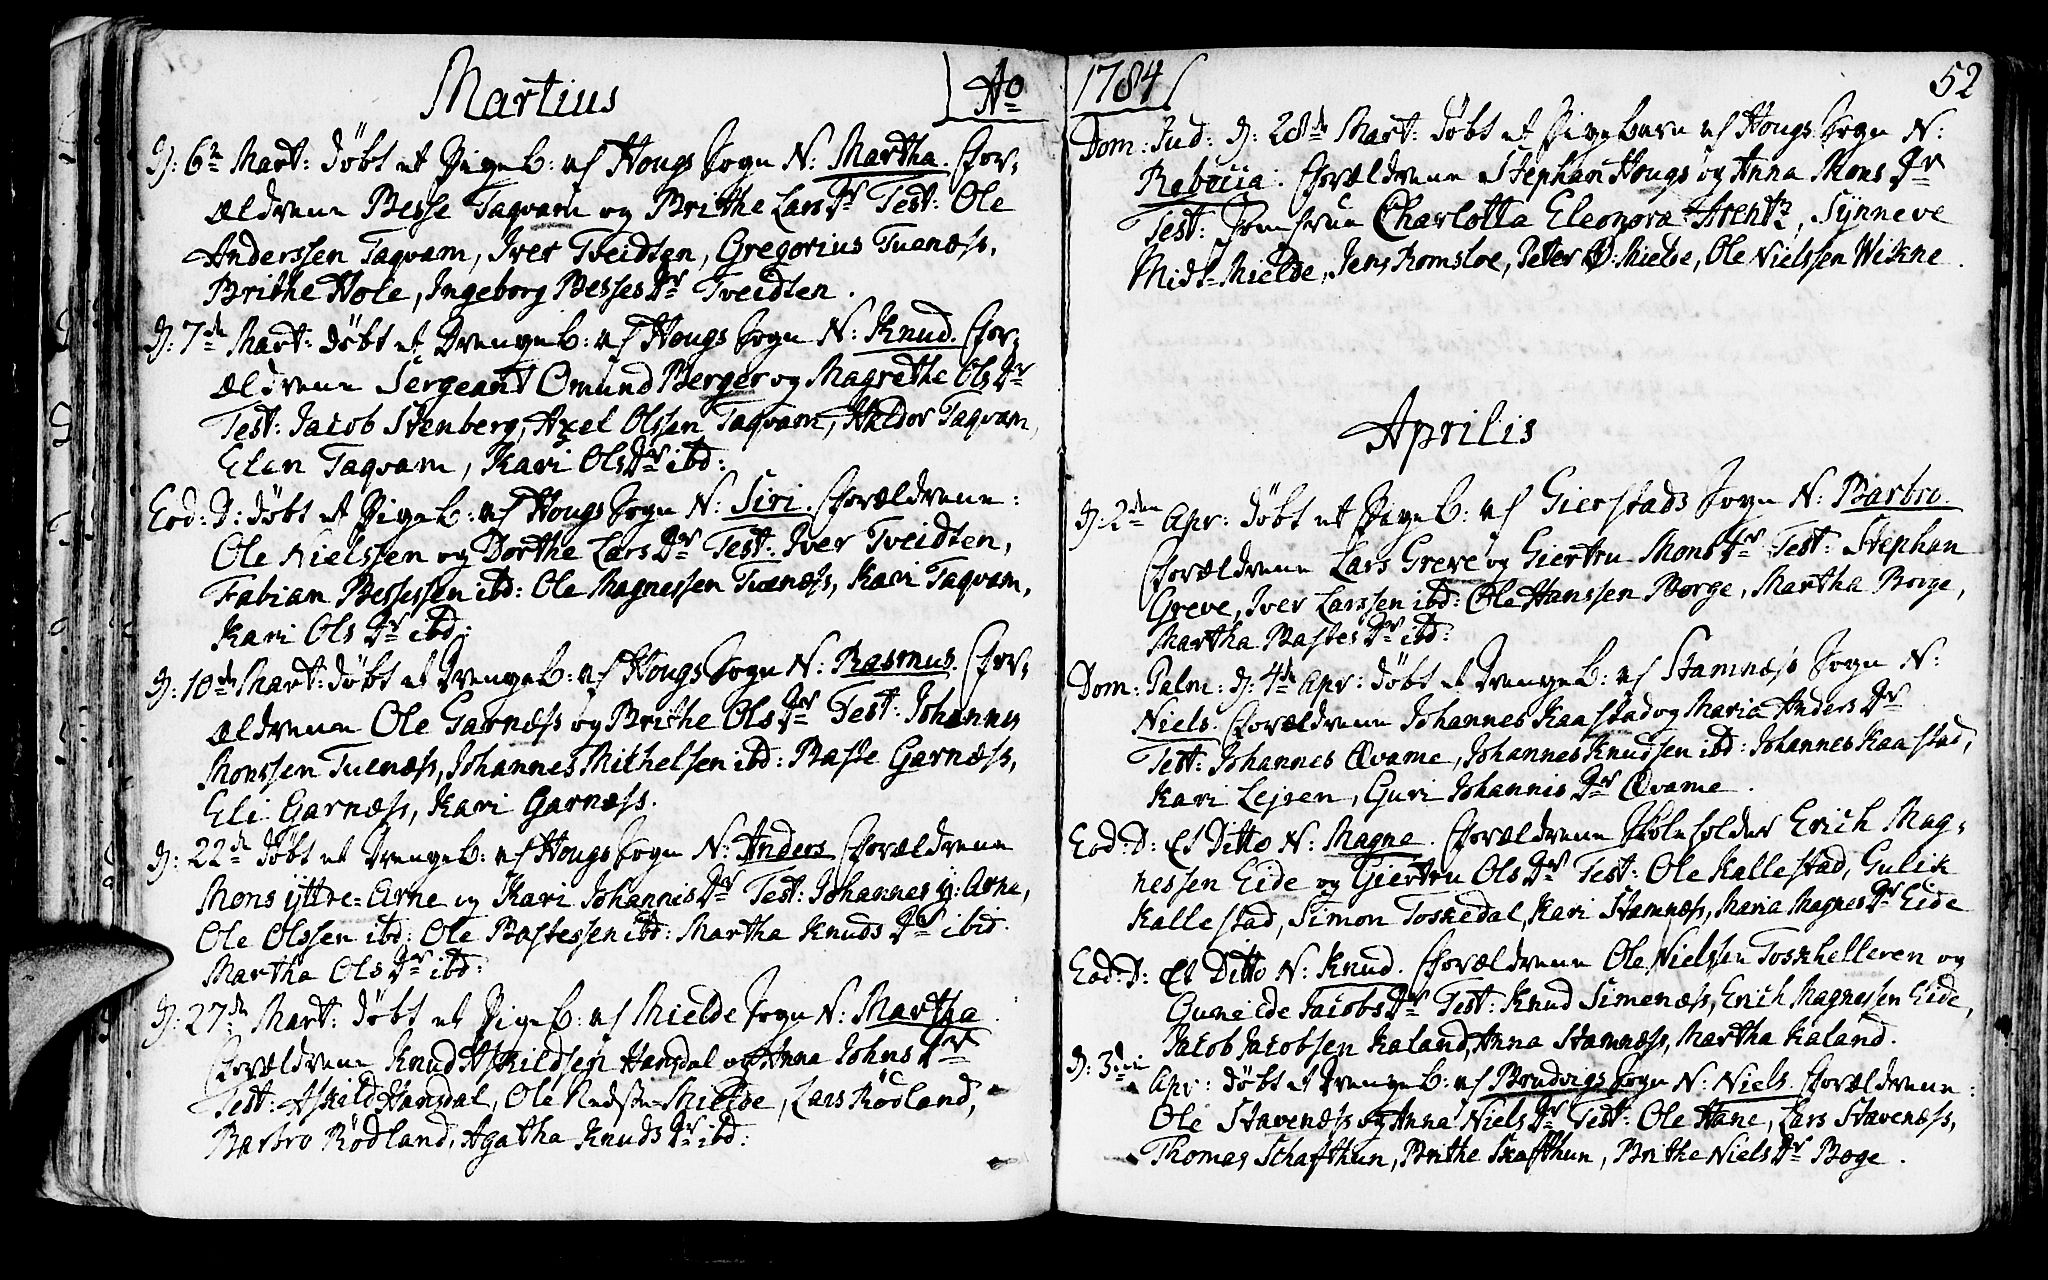 Martius
Ao
D: 6te Mart: döbt et Pigeb: af Hougs Sogn N: Martha. For-
ældrene Besse Taqvam og Brithe LarsDr Test: Ole
Anderssen Taqvam, Iver Tveidten, Gregorius Tuenæss,
Brithe Hole, Ingeborg BessesDr Tveidten.
D: 7de Mart: döbt et Drengeb: af Hougs Sogn N: Knud. For-
ældrene Sergeant Omund Berger og Magrethe OlsDr
Test: Jacob Stenberg, Axel Olssen Taqvam, Haldor Taqvam,
Elen Taqvam, Kari OlsDr ibd:
Eod: D: döbt et Pigeb: af Hougs Sogn N: Siri. Forældrene:
Ole Nielssen og Dorthe LarsDr Test: Iver Tveidten,
Fabian Bessessen ibd: Ole Magnessen Tuenæss, Kari Taqvam,
Kari OlsDr ibd:
D: 10de Mart: döbt et Drengeb: af Hougs Sogn N: Rasmus. For-
ældrene Ole Garnæss og Brithe OlsDr Test: Johannes
Monssen Tuenæss, Johannes Mithelsen ibd: Baste Garnæss,
Eli Garnæss, Kari Garnæss.
D: 22de döbt et Drengeb: af Hougs Sogn N: Anders Forældrene
Mons yttre-Arne og Kari JohannisDr Test: Johannes y: Arne,
Ole Olssen ibd: Ole Bastessen ibd: Martha KnudsDr ibid.
Martha OlsDr ibd:
D: 27de Mart: döbt et Pigeb: af Mielde Sogn N: Martha.
Forældrene Knud Askildsen Hansdal og Anna JohnsDr
Test: Askild Hansdal, Ole Nedste-Mielde, Lars Rödland,
Barbro Rödland, Agatha KnudsDr ibd:
1784
52
Dom: Jud: D: 28de Mart: döbt et Pigebarn af Hougs Sogn N:
Rebecia. Forældrene Stephan Hougs og Anna MonsDr
Test: Jomfrue Charlotta Eleonora Arentz, Synneve
Midt-Mielde, Jens Romsloe, Peter Ø: Mielde, Ole Nielssen Wikne.
Aprilis
D: 2den Apr: döbt et Pigeb: af Gierstads Sogn N: Barbro.
Forældrene Lars Greve og Giertru MonsDr Test: Stephan
Greve, Iver Larssen ibd: Ole Hanssen Borge, Martha Borge,
Martha BastesDr ibd:
Dom: Palm: D: 4de Apr: döbt et Drengeb: af Stamnæss Sogn N:
Niels. Forældrene Johannes Kaastad og Maria AndersDr
Test: Johannes Qvame, Johannes Knudssen ibd: Johannes Kaastad,
Kari Lejren, Guri JohannisDr Qvame.
Eod: D: Et Ditto N: Magne. Forældrene Skoleholder Erich Mag-
nessen Eide og Giertru OlsDr Test: Ole Kallestad, Gulik
Kallestad, Simon Toskedal, Kari Stamnæss, Maria MagnesDr Eide
Eod: D: Et Ditto N: Knud. Forældrene Ole Nielssen Toskhelleren og
Gunilde JacobsDr Test: Knud Simenæss, Erich Magnessen Eide,
Jacob Jacobsen Kaland, Anna Stamnæss, Martha Kaland.
D: 3die Apr: döbt et Drengeb: af Brudvigs Sogn N: Niels. Forældrene:
Ole Stavenæss og Anna NielsDr Test: Ole Hane, Lars Stavenæss,
Thomas Schafthun, Brithe Skafthun, Brithe NielsDr Boge.